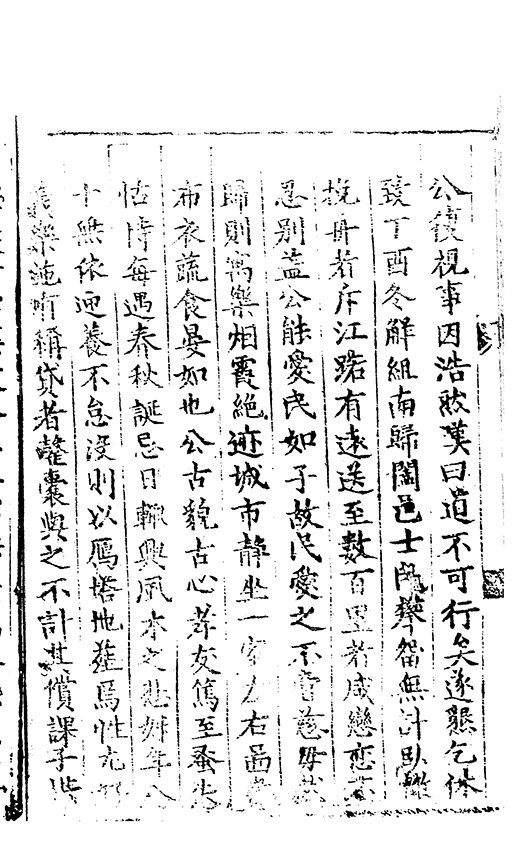 公復視事因浩然漢曰道不可行矣遂懇乞休
致丁酉冬解組南歸闔邑士民攀留無計臥轍
挽舟若斥江踣有遠送至數百里者咸戀戀不
忍別蓋公能愛民如子故民愛之不啻慈母
歸則寓樂烟霞絶迹城市静坐一室左右啚書
布衣蔬食晏如也公古貌古心孝友篤至蚤失
怙恃每遇春秋誕忌日輒興風木之悲姊年八
十無依迎養不怠没則以鴈塔地𦵏焉性尤好
義樂施所稱貸者罄囊與之不計其償課子